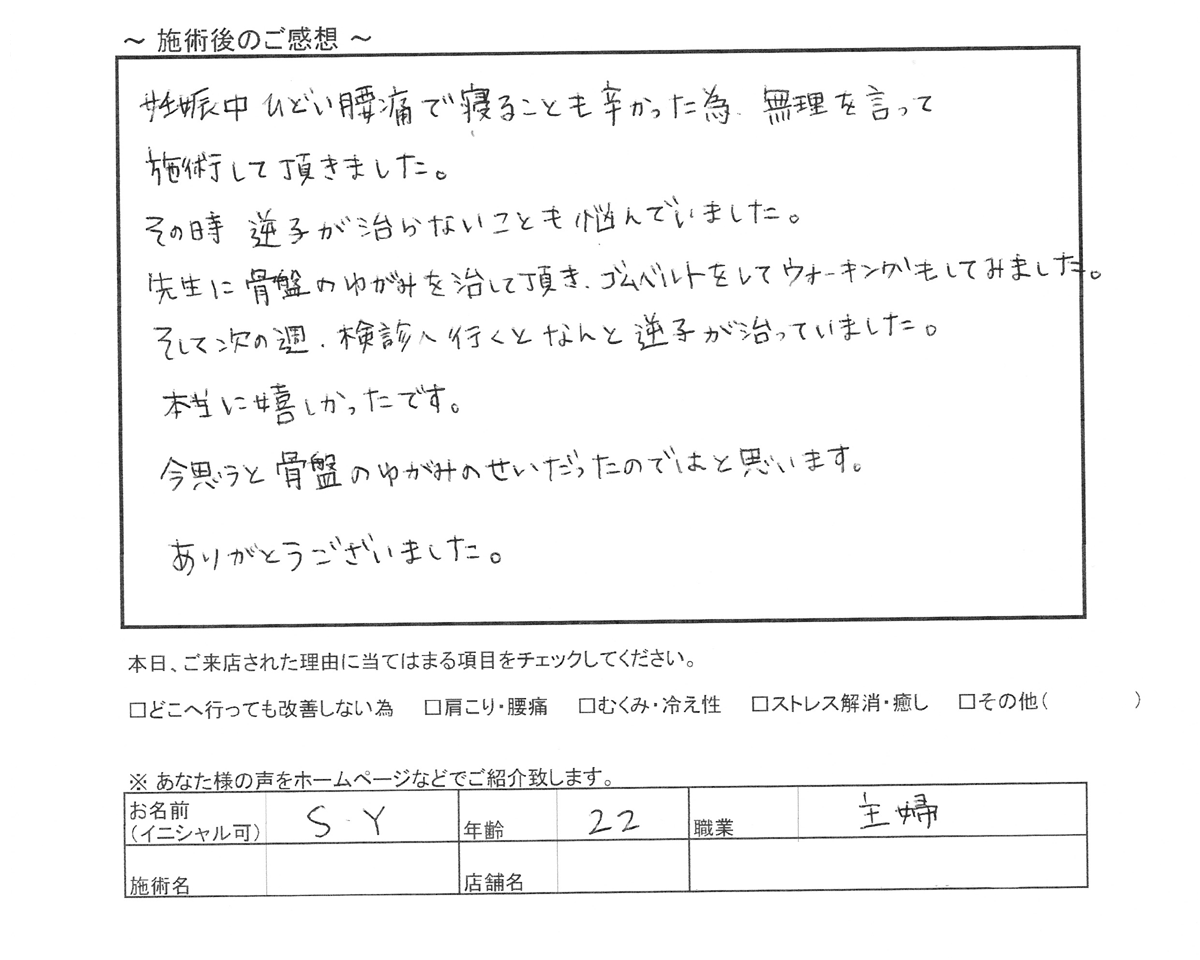 ～ 施術後のご感想 ～
妊娠中 ひどい腰痛で寝ることも辛かった為、無理を言って
施術して頂きました。
その時 逆子が治らないことも悩んでいました。
先生に骨盤のゆがみを治して頂き、ゴムベルトをしてウォーキングもしてみました。
そして次の週、検診へ行くとなんと逆子が治っていました。
本当に嬉しかったです。
今思うと骨盤のゆがみのせいだったのではと思います。
ありがとうございました。
本日、ご来店された理由に当てはまる項目をチェックしてください。
□どこへ行っても改善しない為 □肩こり・腰痛 □むくみ・冷え性 □ストレス解消・癒し □その他( )
※ あなた様の声をホームページなどでご紹介致します。
お名前
(イニシャル可) S Y 年齢 22 職業 主婦
施術名 店舗名